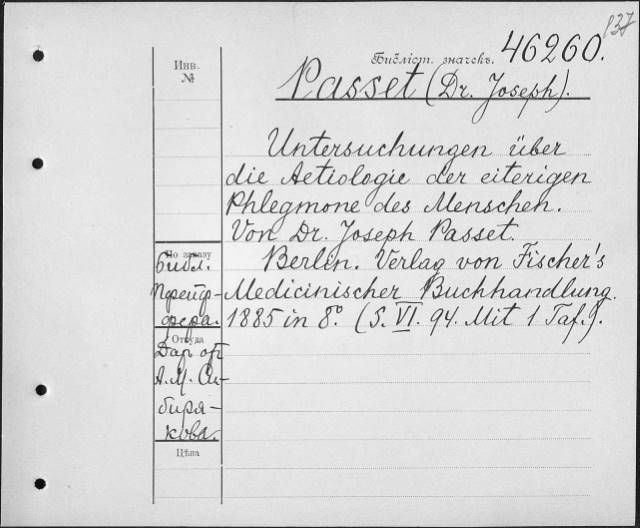 137
Библіот. значекъ. 46260.
Инв.
№
Passet (Dr. Joseph).
Untersuchungen über
die Aetiologie der eiterigen
Phlegmone des Menschen.
Von Dr. Joseph Passet.
Berlin. Verlag von Fischer's
Medicinischer Buchhandlung.
1885 in 8º. (S. VI. 94. Mit 1 Taf.).
По заказу
Библ.
Прейф-
фера.
Откуда
Даръ отъ
А. М. Си-
биря-
кова.
Цѣна